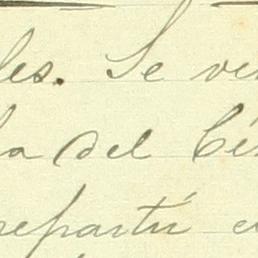 les. Se ve
la del Cé
repartú e